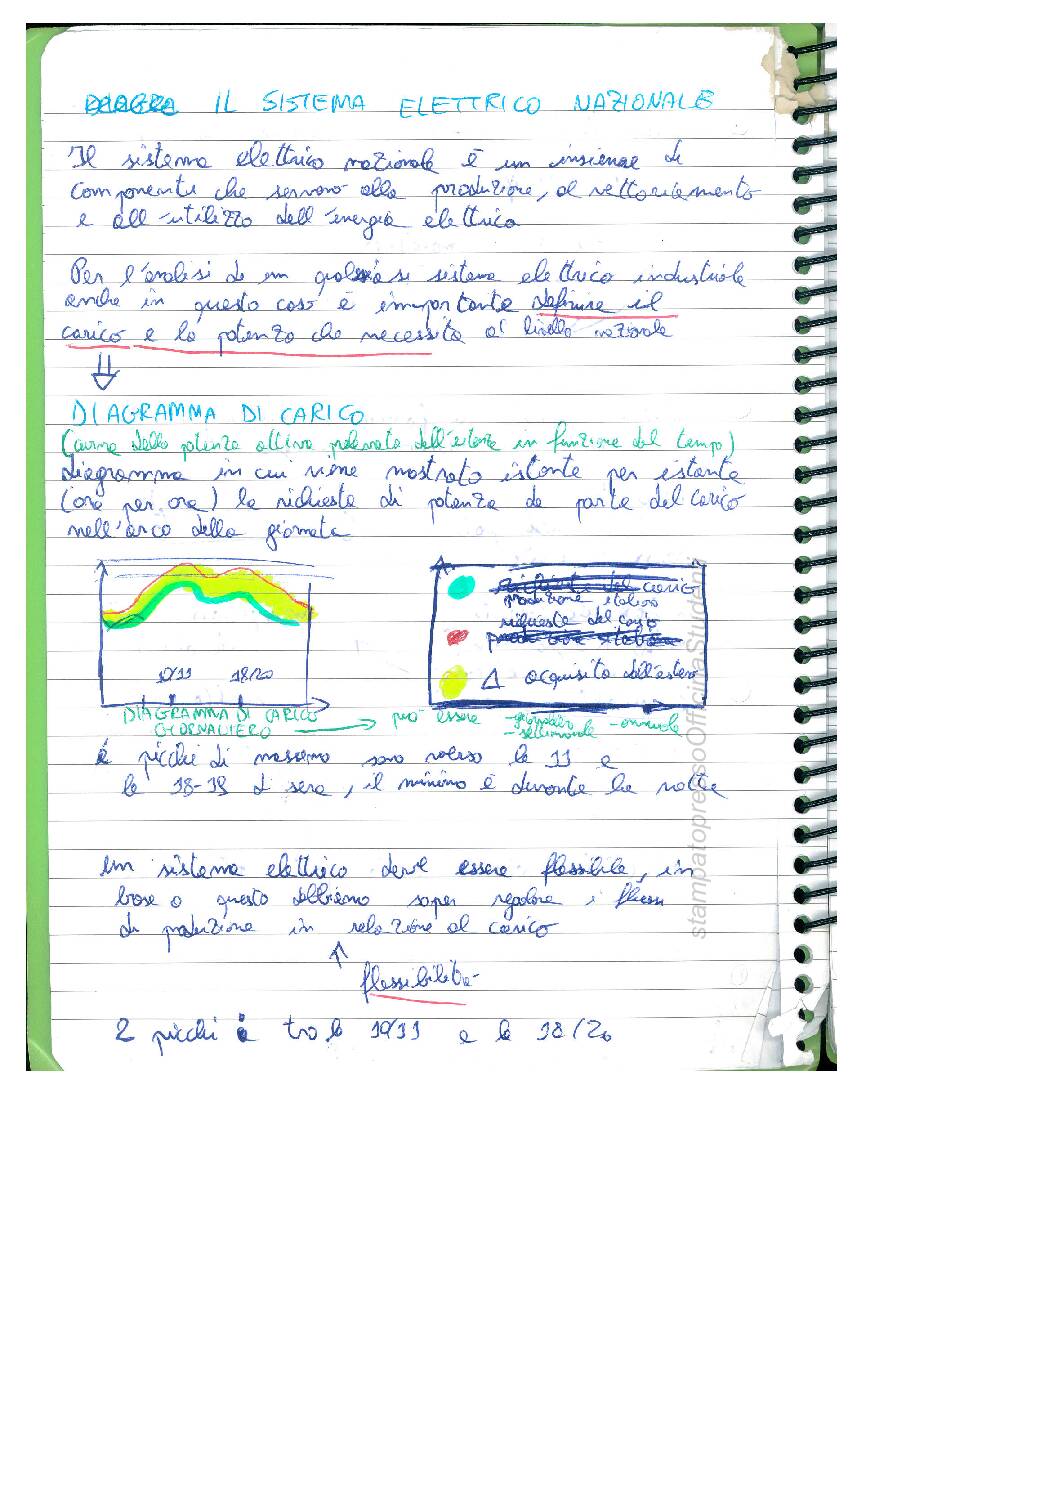 IL SISTEMA ELETTRICO NAZIONALE
Il sistema elettrico nazionale è un insieme di
componenti che servono alla produzione, al vettoriamento
e all'utilizzo dell'energia elettrica
Per l'analisi di un qualsiasi sistema elettrico industriale
anche in questo caso è importante definire il
carico e la potenza che necessita a livello nazionale
⇓
DIAGRAMMA DI CARICO
(curva della potenza attiva prelevata dall'utente in funzione del tempo)
diagramma in cui viene mostrato istante per istante
(ora per ora) la richiesta di potenza da parte del carico
nell'arco della giornata
carico
produzione italiana
richiesta del carico
Δ acquisito dall'estero
10/11 18/20
DIAGRAMMA DI CARICO
GIORNALIERO → può essere - giornaliero - annuale
- settimanale
I picchi di massimo sono verso le 11 e
le 18-19 di sera, il minimo è durante la notte
Un sistema elettrico deve essere flessibile, in
base a questo dobbiamo saper regolare i flussi
di produzione in relazione al carico
↑
flessibilità
2 picchi tra le 10/11 e le 18/20
stampatopressoOfficinaStudenti